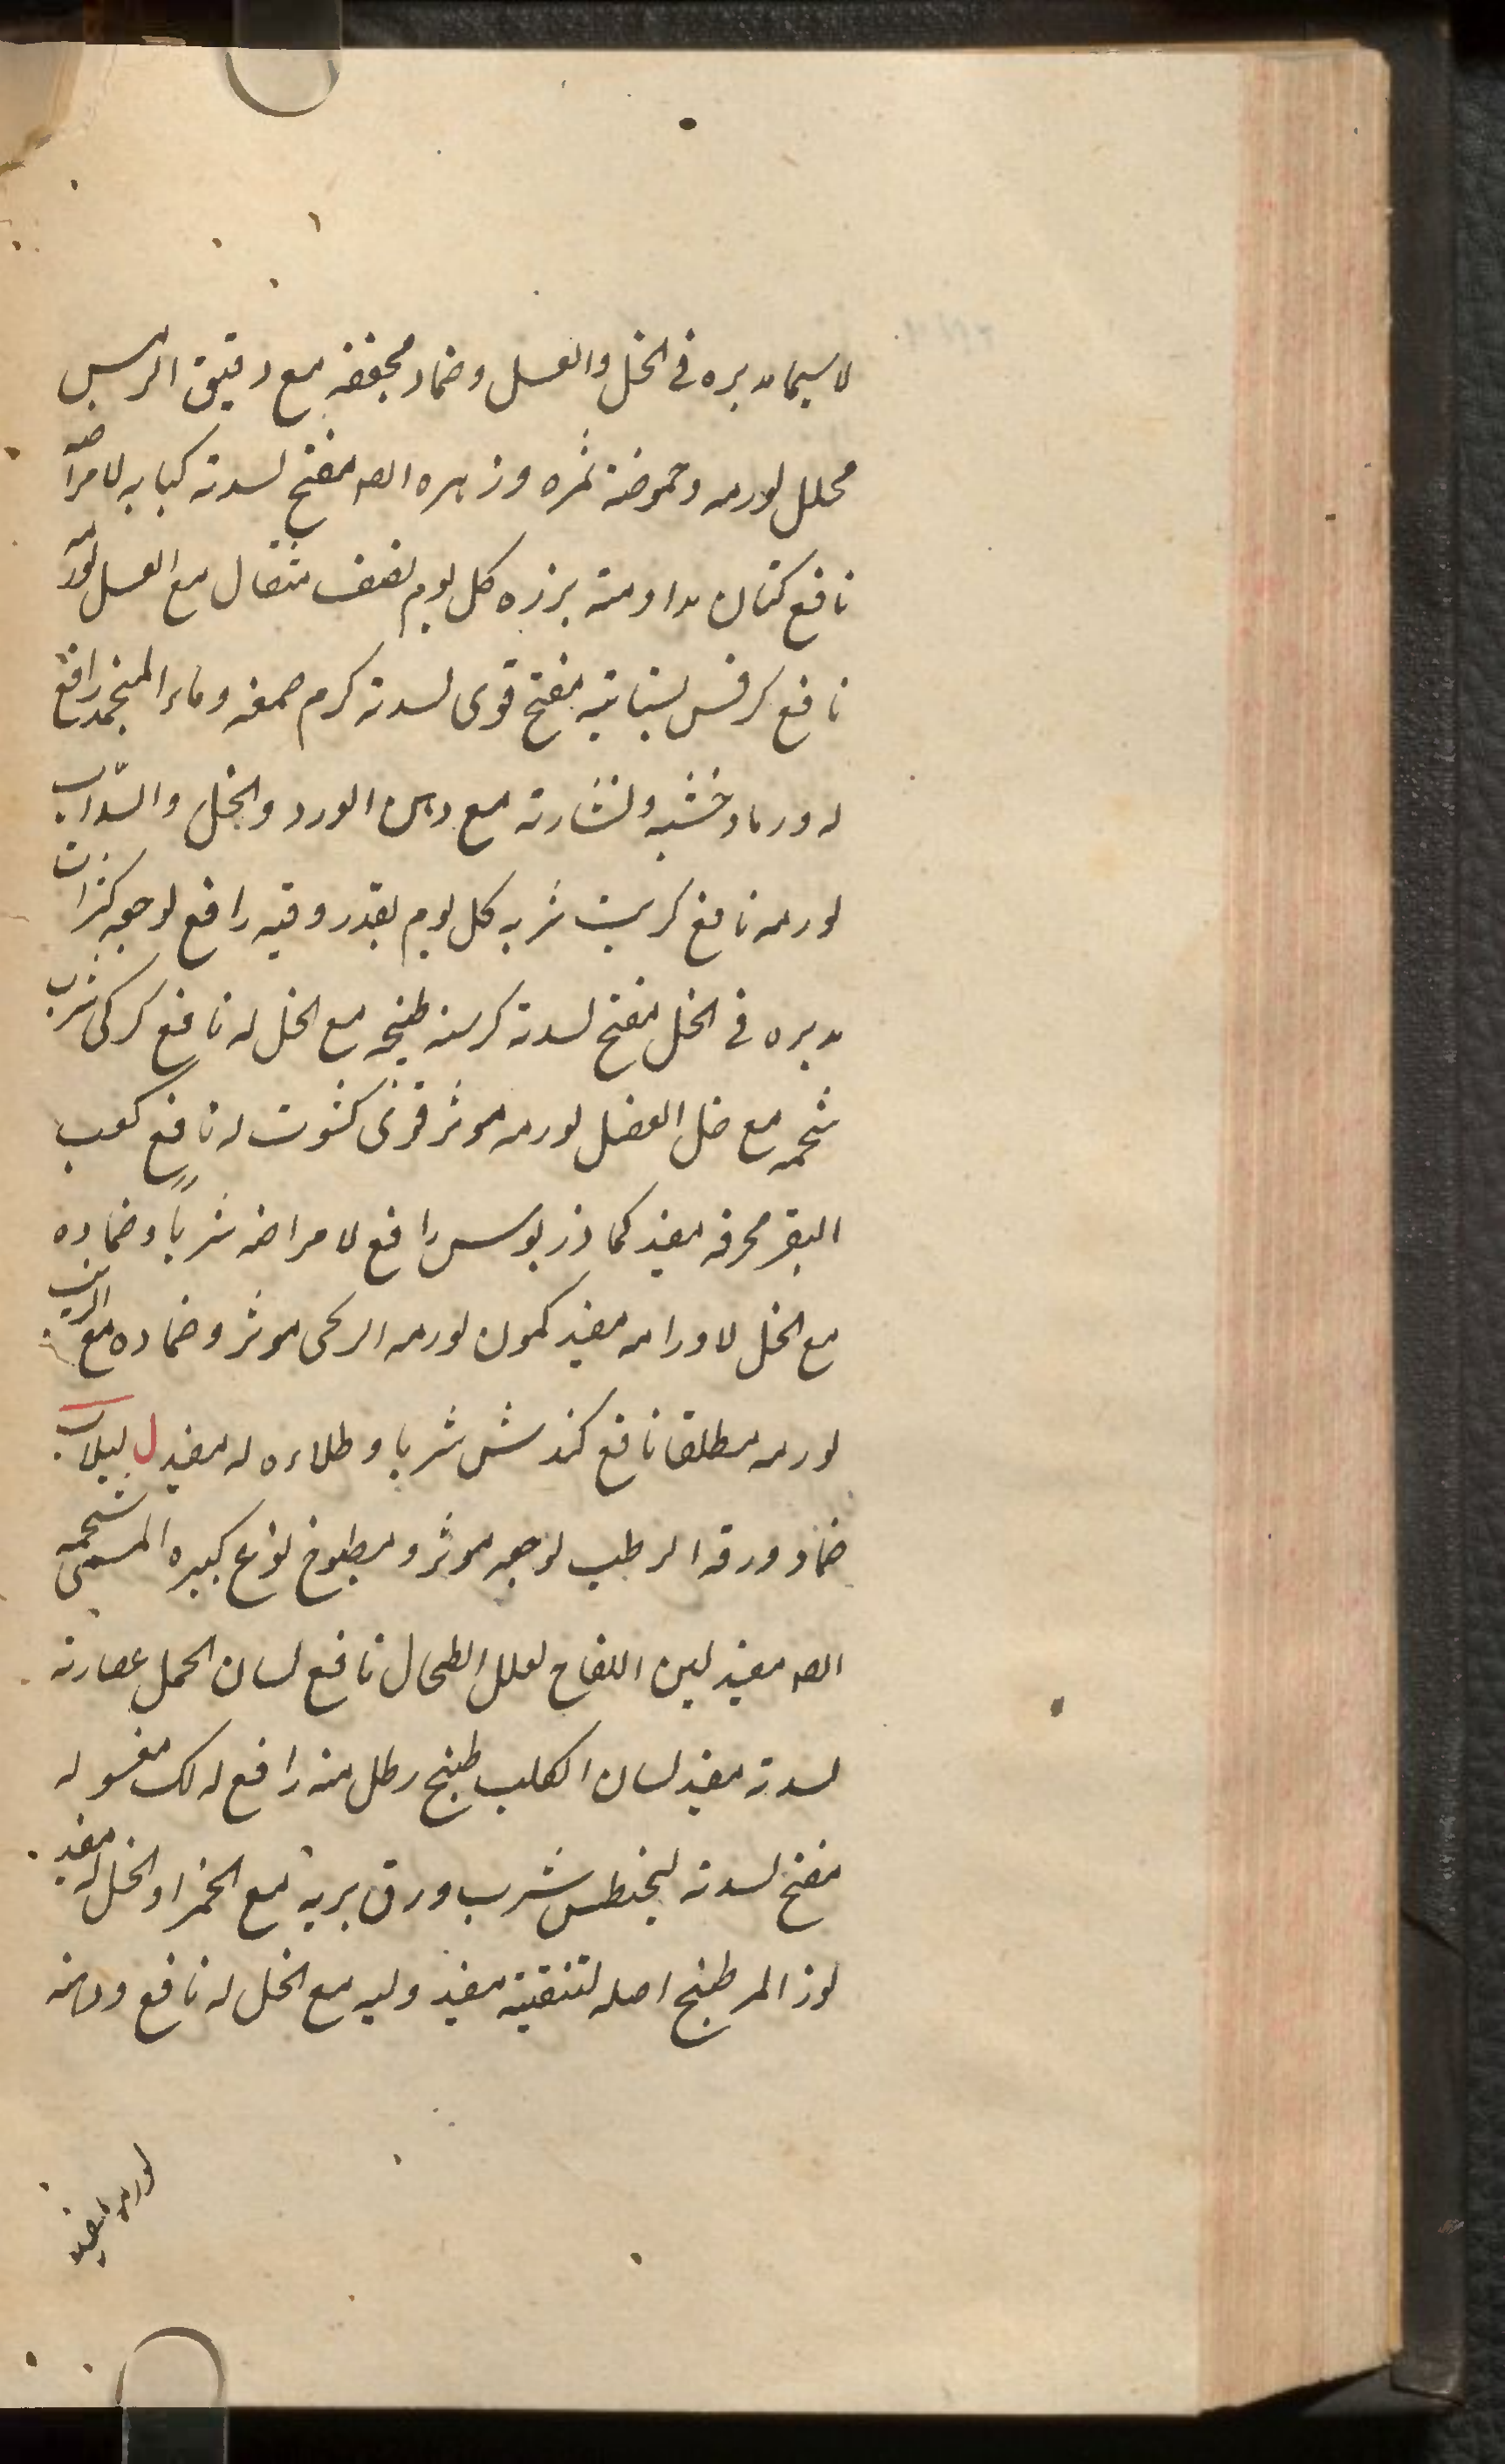 لا سيما مدبره فى الخل والعسل وضماد مجففه مع دقيق الترمس
محلل لورمه وحموضة ثمره وزهره اله مفتح لسدته كبابه لامراضه
نافع كتان مداومة بزره كل يوم نصف مثقال مع العسل لورمه
نافع كرفس بستانيه مفتح قوى لسدته كرم صمغه وماءه المنجمد رافع
له ورماد خشبه ونشارته مع دهن الورد والخل والسذاب
لورمه نافع كبريت شربه كل يوم بقدر وقيه رافع لوجعه كراث
مدبره فى الخل مفتح لسدته كرسنه طبيخه مع الخل له نافع كركى شرب
شحمه مع خل العنصل لورمه موثر قوى كشوت له نافع كعب
البقر محرقه مفيد كماذريوس رافع لامراضه شربا وضماده
مع الخل لاورامه مفيد كمون لورمه الريحى موثر وضماده مع الزيت
لورمه مطلقا نافع كندش شربا وطلاءه له مفيد ل لبلاب
ضماد ورقه الرطب لوجعه موثر ومطبوخ نوع كبيره المسمى شحمه
اله مفيد لبن اللقاح لعلل الطحال نافع لسان الحمل عصارته
لسدته مفيد لسان الكلب طبيخ رطل منه رافع له لك مغسوله
مفتح لسدته شرب ورق بريه مع الخمر او الخل له مفيد
لوز المر طبيخ اصله لتنقيته مفيد ولبه مع الخل له نافع ودهنه
لورمه مفيد